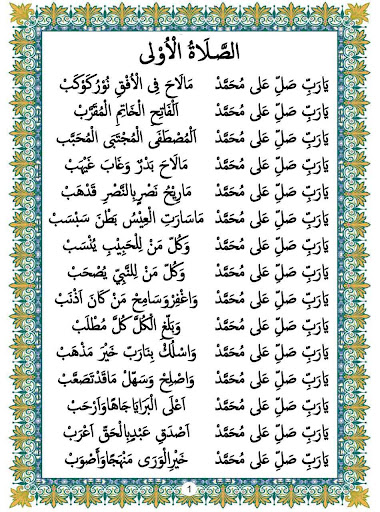 الصَّلَاةُ الْأُوْلَى
يَارَبِّ صَلِّ عَلَى مُحَمَّدْ مَالَاحَ فِى الْأُفُقِ نُوْرُكَوْكَبْ
يَارَبِّ صَلِّ عَلَى مُحَمَّدْ اَلْفَاتِحِ الْخَاتِمِ الْمُقَرَّبْ
يَارَبِّ صَلِّ عَلَى مُحَمَّدْ اَلْمُصْطَفَى الْمُجْتَبَى الْمُحَبَّبْ
يَارَبِّ صَلِّ عَلَى مُحَمَّدْ مَالَاحَ بَدْرٌ وَغَابَ غَيْهَبْ
يَارَبِّ صَلِّ عَلَى مُحَمَّدْ مَارِيْحُ نَصْرٍبِالنَّصْرِ قَدْهَبْ
يَارَبِّ صَلِّ عَلَى مُحَمَّدْ مَاسَارَتِ الْعِيْسُ بَطْنَ سَبْسَبْ
يَارَبِّ صَلِّ عَلَى مُحَمَّدْ وَكُلِّ مَنْ لِلْحَبِيْبِ يُنْسَبْ
يَارَبِّ صَلِّ عَلَى مُحَمَّدْ وَكُلِّ مَنْ لِلنَّبِيِّ يُصْحَبْ
يَارَبِّ صَلِّ عَلَى مُحَمَّدْ وَاغْفِرْوَسَامِحْ مَنْ كَانَ اَذْنَبْ
يَارَبِّ صَلِّ عَلَى مُحَمَّدْ وَبَلِّغِ الْكُلَّ كُلَّ مَطْلَبْ
يَارَبِّ صَلِّ عَلَى مُحَمَّدْ وَاسْلُكْ بِنَارَبِّ خَيْرَ مَذْهَبْ
يَارَبِّ صَلِّ عَلَى مُحَمَّدْ وَاصْلِحْ وَسَهِّلْ مَاقَدْتَصَعَّبْ
يَارَبِّ صَلِّ عَلَى مُحَمَّدْ اَعْلَى الْبَرَايَاجَاهًاوَاَرْحَبْ
يَارَبِّ صَلِّ عَلَى مُحَمَّدْ اَصْدَقِ عَبْدٍبِالْحَقِّ اَعْرَبْ
يَارَبِّ صَلِّ عَلَى مُحَمَّدْ خَيْرِالْوَرَى مَنْهَجًاوَاَصْوَبْ
1